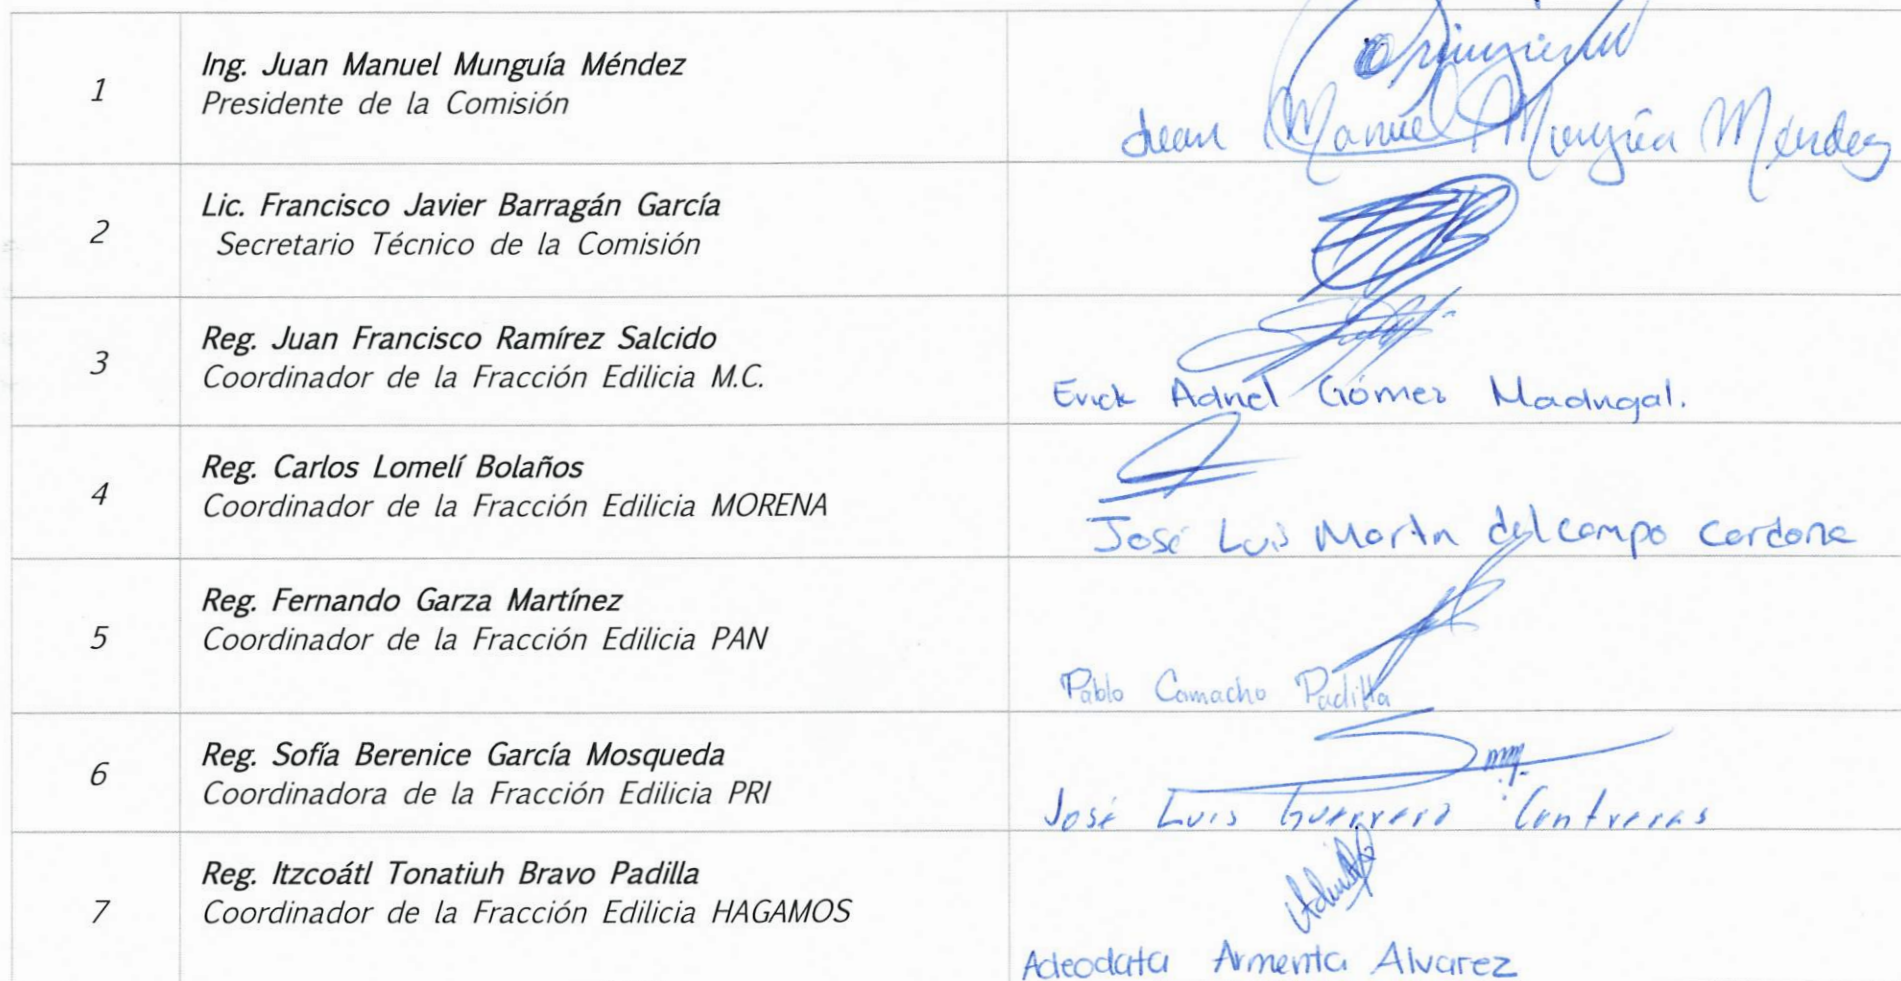 1
Ing. Juan Manuel Munguía Méndez
Presidente de la Comisión
Juan Manuel Munguía Méndez
2
Lic. Francisco Javier Barragán García
Secretario Técnico de la Comisión
3
Reg. Juan Francisco Ramírez Salcido
Coordinador de la Fracción Edilicia M.C.
Erick Adriel Gómez Madrigal.
4
Reg. Carlos Lomelí Bolaños
Coordinador de la Fracción Edilicia MORENA
José Luis Martín del campo Cardona
5
Reg. Fernando Garza Martínez
Coordinador de la Fracción Edilicia PAN
Pablo Camacho Padilla
6
Reg. Sofía Berenice García Mosqueda
Coordinadora de la Fracción Edilicia PRI
José Luis Guerrero Contreras
7
Reg. Itzcoátl Tonatiuh Bravo Padilla
Coordinador de la Fracción Edilicia HAGAMOS
Adeodata Armenta Alvarez